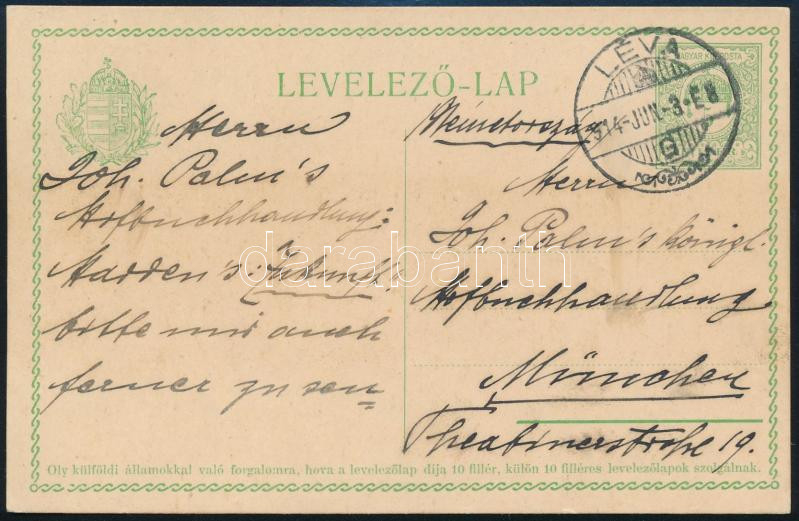 LEVELEZŐ-LAP
MAGYAR KIR. POSTA
LÉVA
914-JUN.-3.E8
G
Németország
Herrn
Joh. Palm's
Hofbuchhandlung:
Harden's: Zukunft.
bitte mir auch
ferner zu sen=
Herrn
Joh. Palm's königl.
Hofbuchhandlung
München
Theatinerstraße 19.
Oly külföldi államokkal való forgalomra, hova a levelezőlap díja 10 fillér, külön 10 filléres levelezőlapok szolgálnak.
darabanth